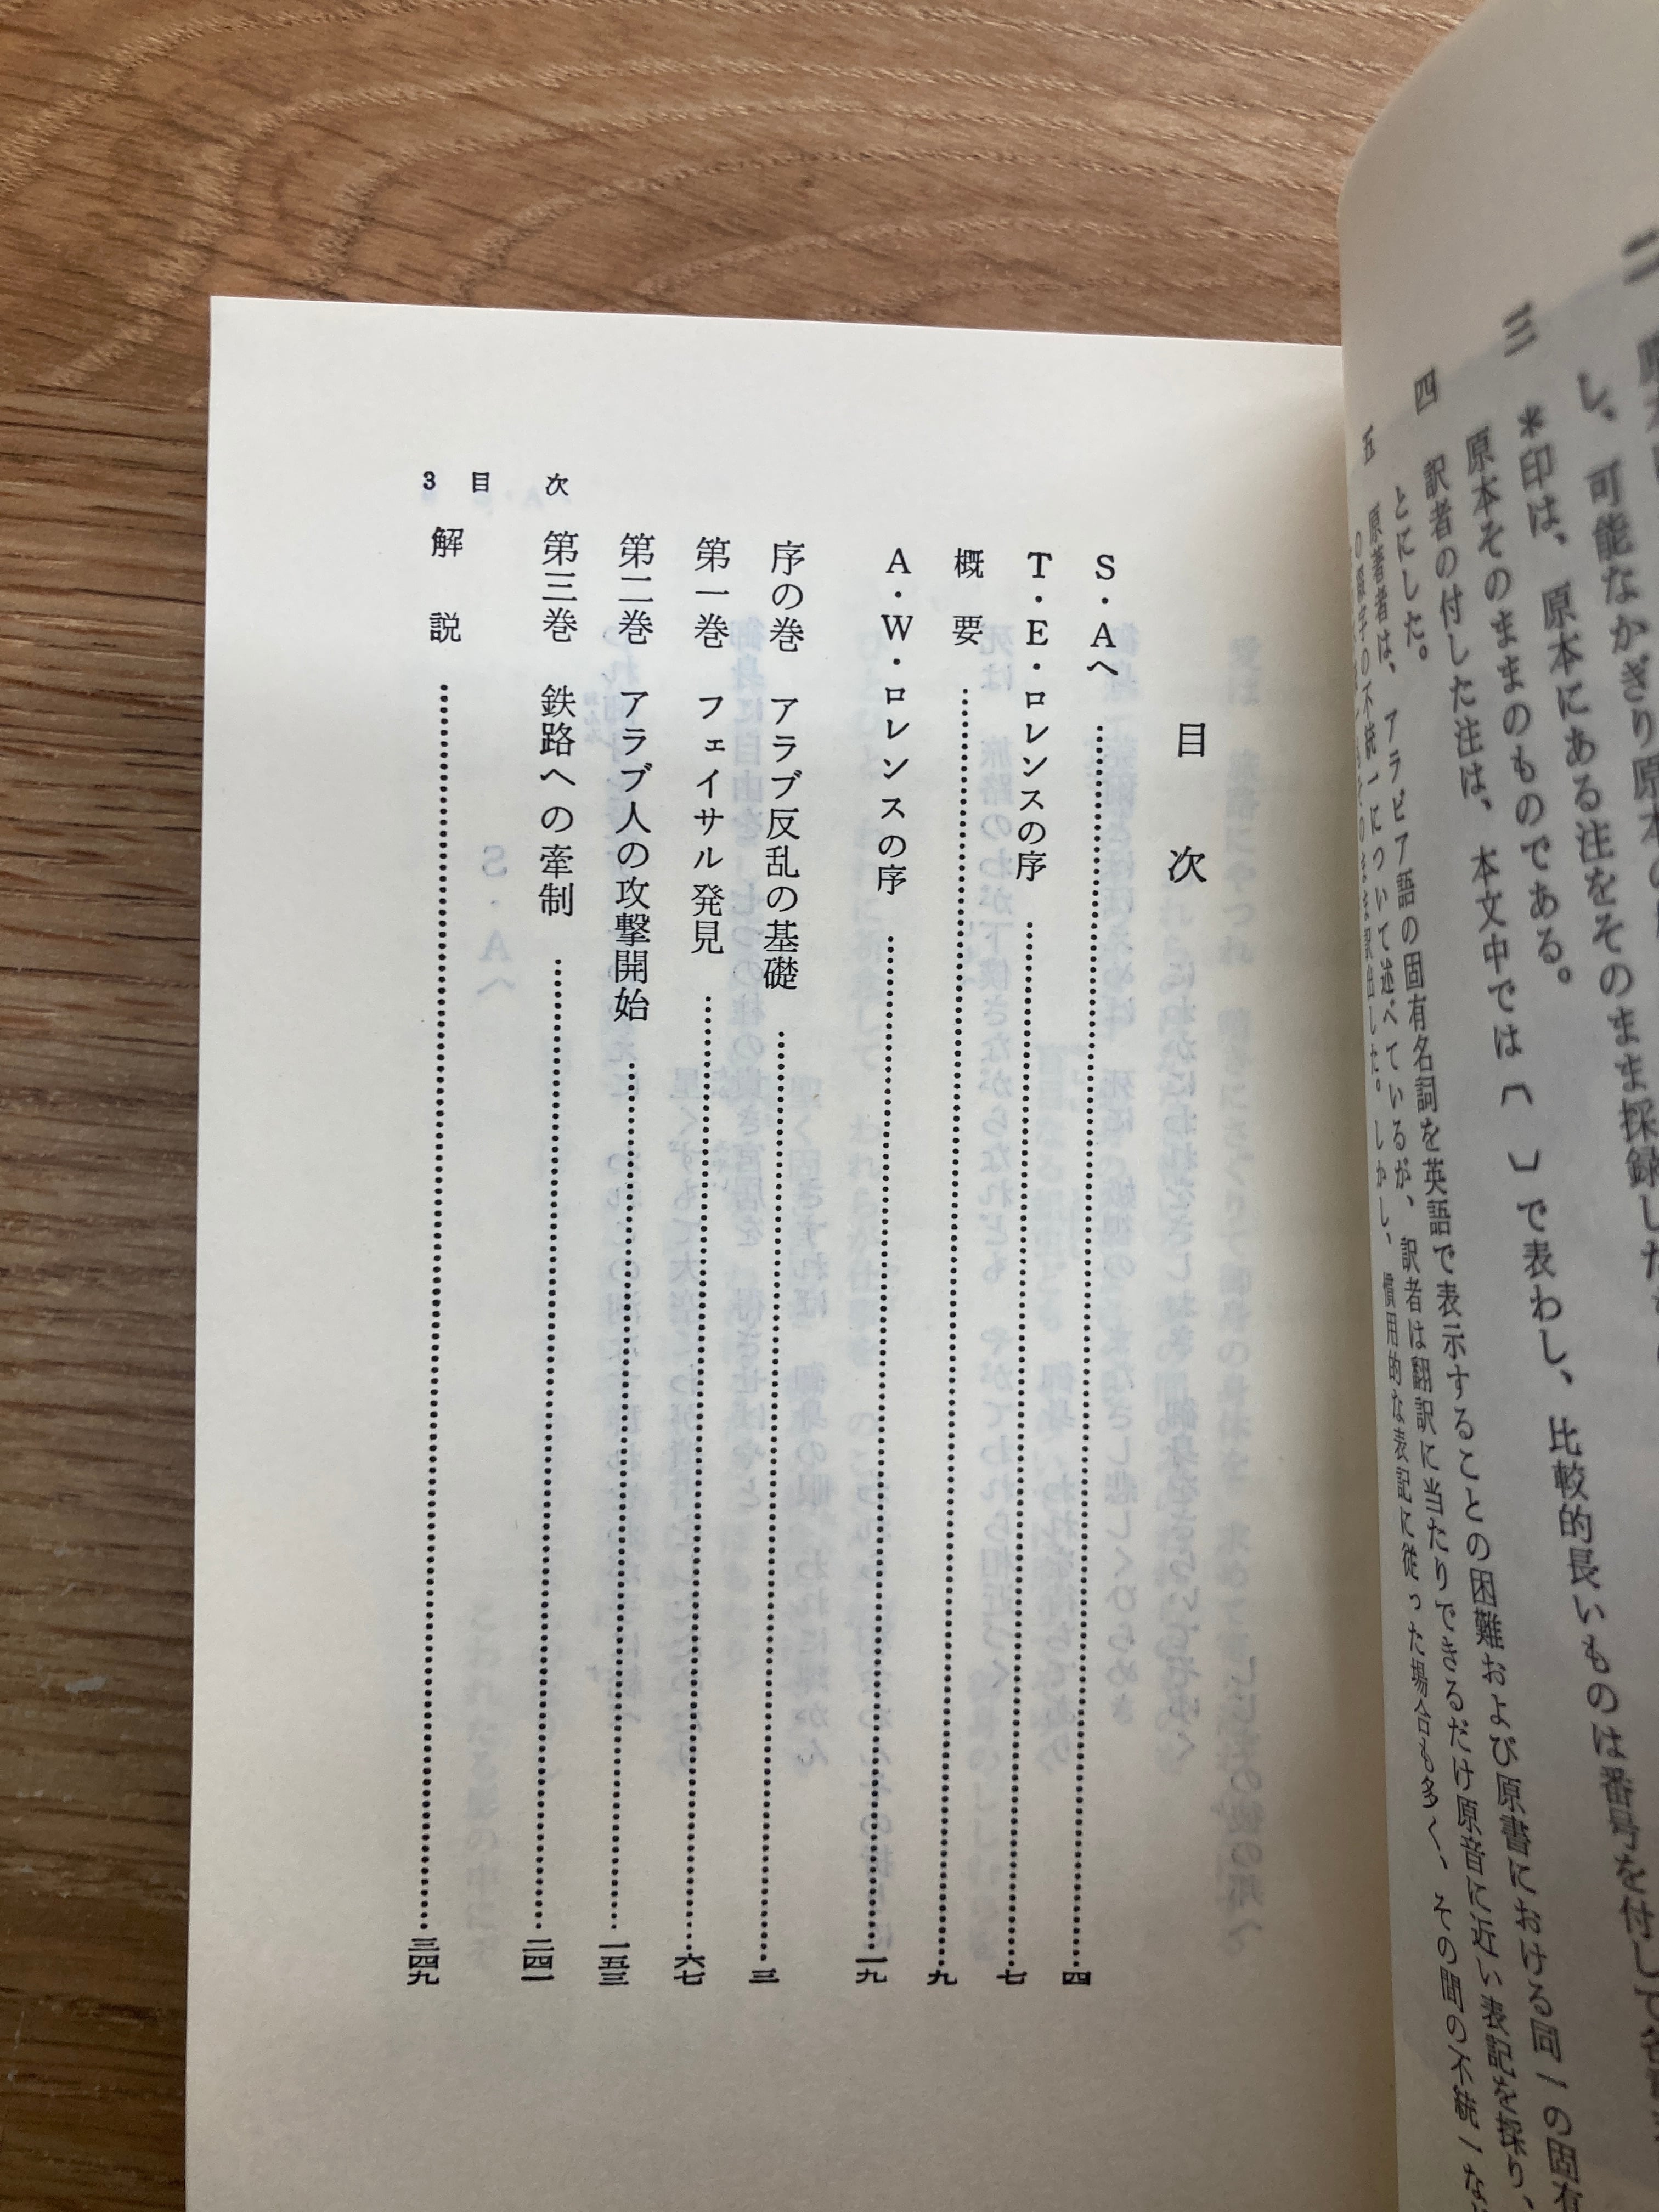 三　*印は、原本そのままのものである。
四　訳者の付した注は、本文中では〔　〕で表わし、比較的長いものは番号を付して
とにした。
五　原著者は、アラビア語の固有名詞を英語で表示することの困難および原書における同一の固有
の綴字の不統一について述べているが、訳者は翻訳に当たりできるだけ原音に近い表記を採り、
そのまま訳出した。しかし、慣用的な表記に従った場合も多く、その間の不統一な
目　次
S・Aへ……四
T・E・ロレンスの序……七
概　要……九
A・W・ロレンスの序……一九
序の巻　アラブ反乱の基礎……三
第一巻　フェイサル発見……六七
第二巻　アラブ人の攻撃開始……一五三
第三巻　鉄路への牽制……二四一
解　説……三四九
3　目　次